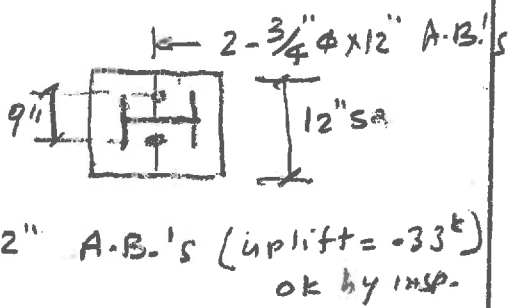 2-3/4" φ x12" A.B.'s
9"
12" SQ
2" A.B.'s (uplift = .33ᵏ)
ok by insp.